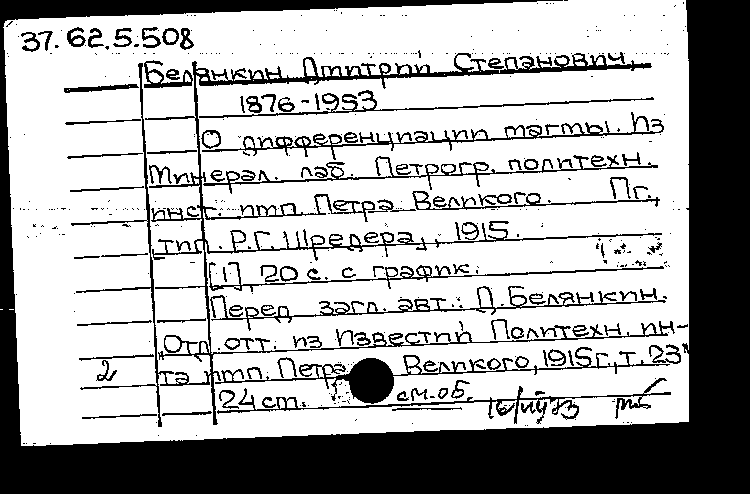 37.62.5.508
Белянкин, Дмитрий Степанович,
1876-1953
О дифференциации магмы. Из
Минерал. лаб. Петрогр. политехн.
инст. имп. Петра Великого. Пг.,
тип. Р.Г. Шредера, 1915.
[1], 20 с. с график.
Перед загл. авт.: Д. Белянкин.
"Отд. отт. из Известий Политехн. ин-
та имп. Петра Великого, 1915 г., т. 23"
2
24 см.
см. об.